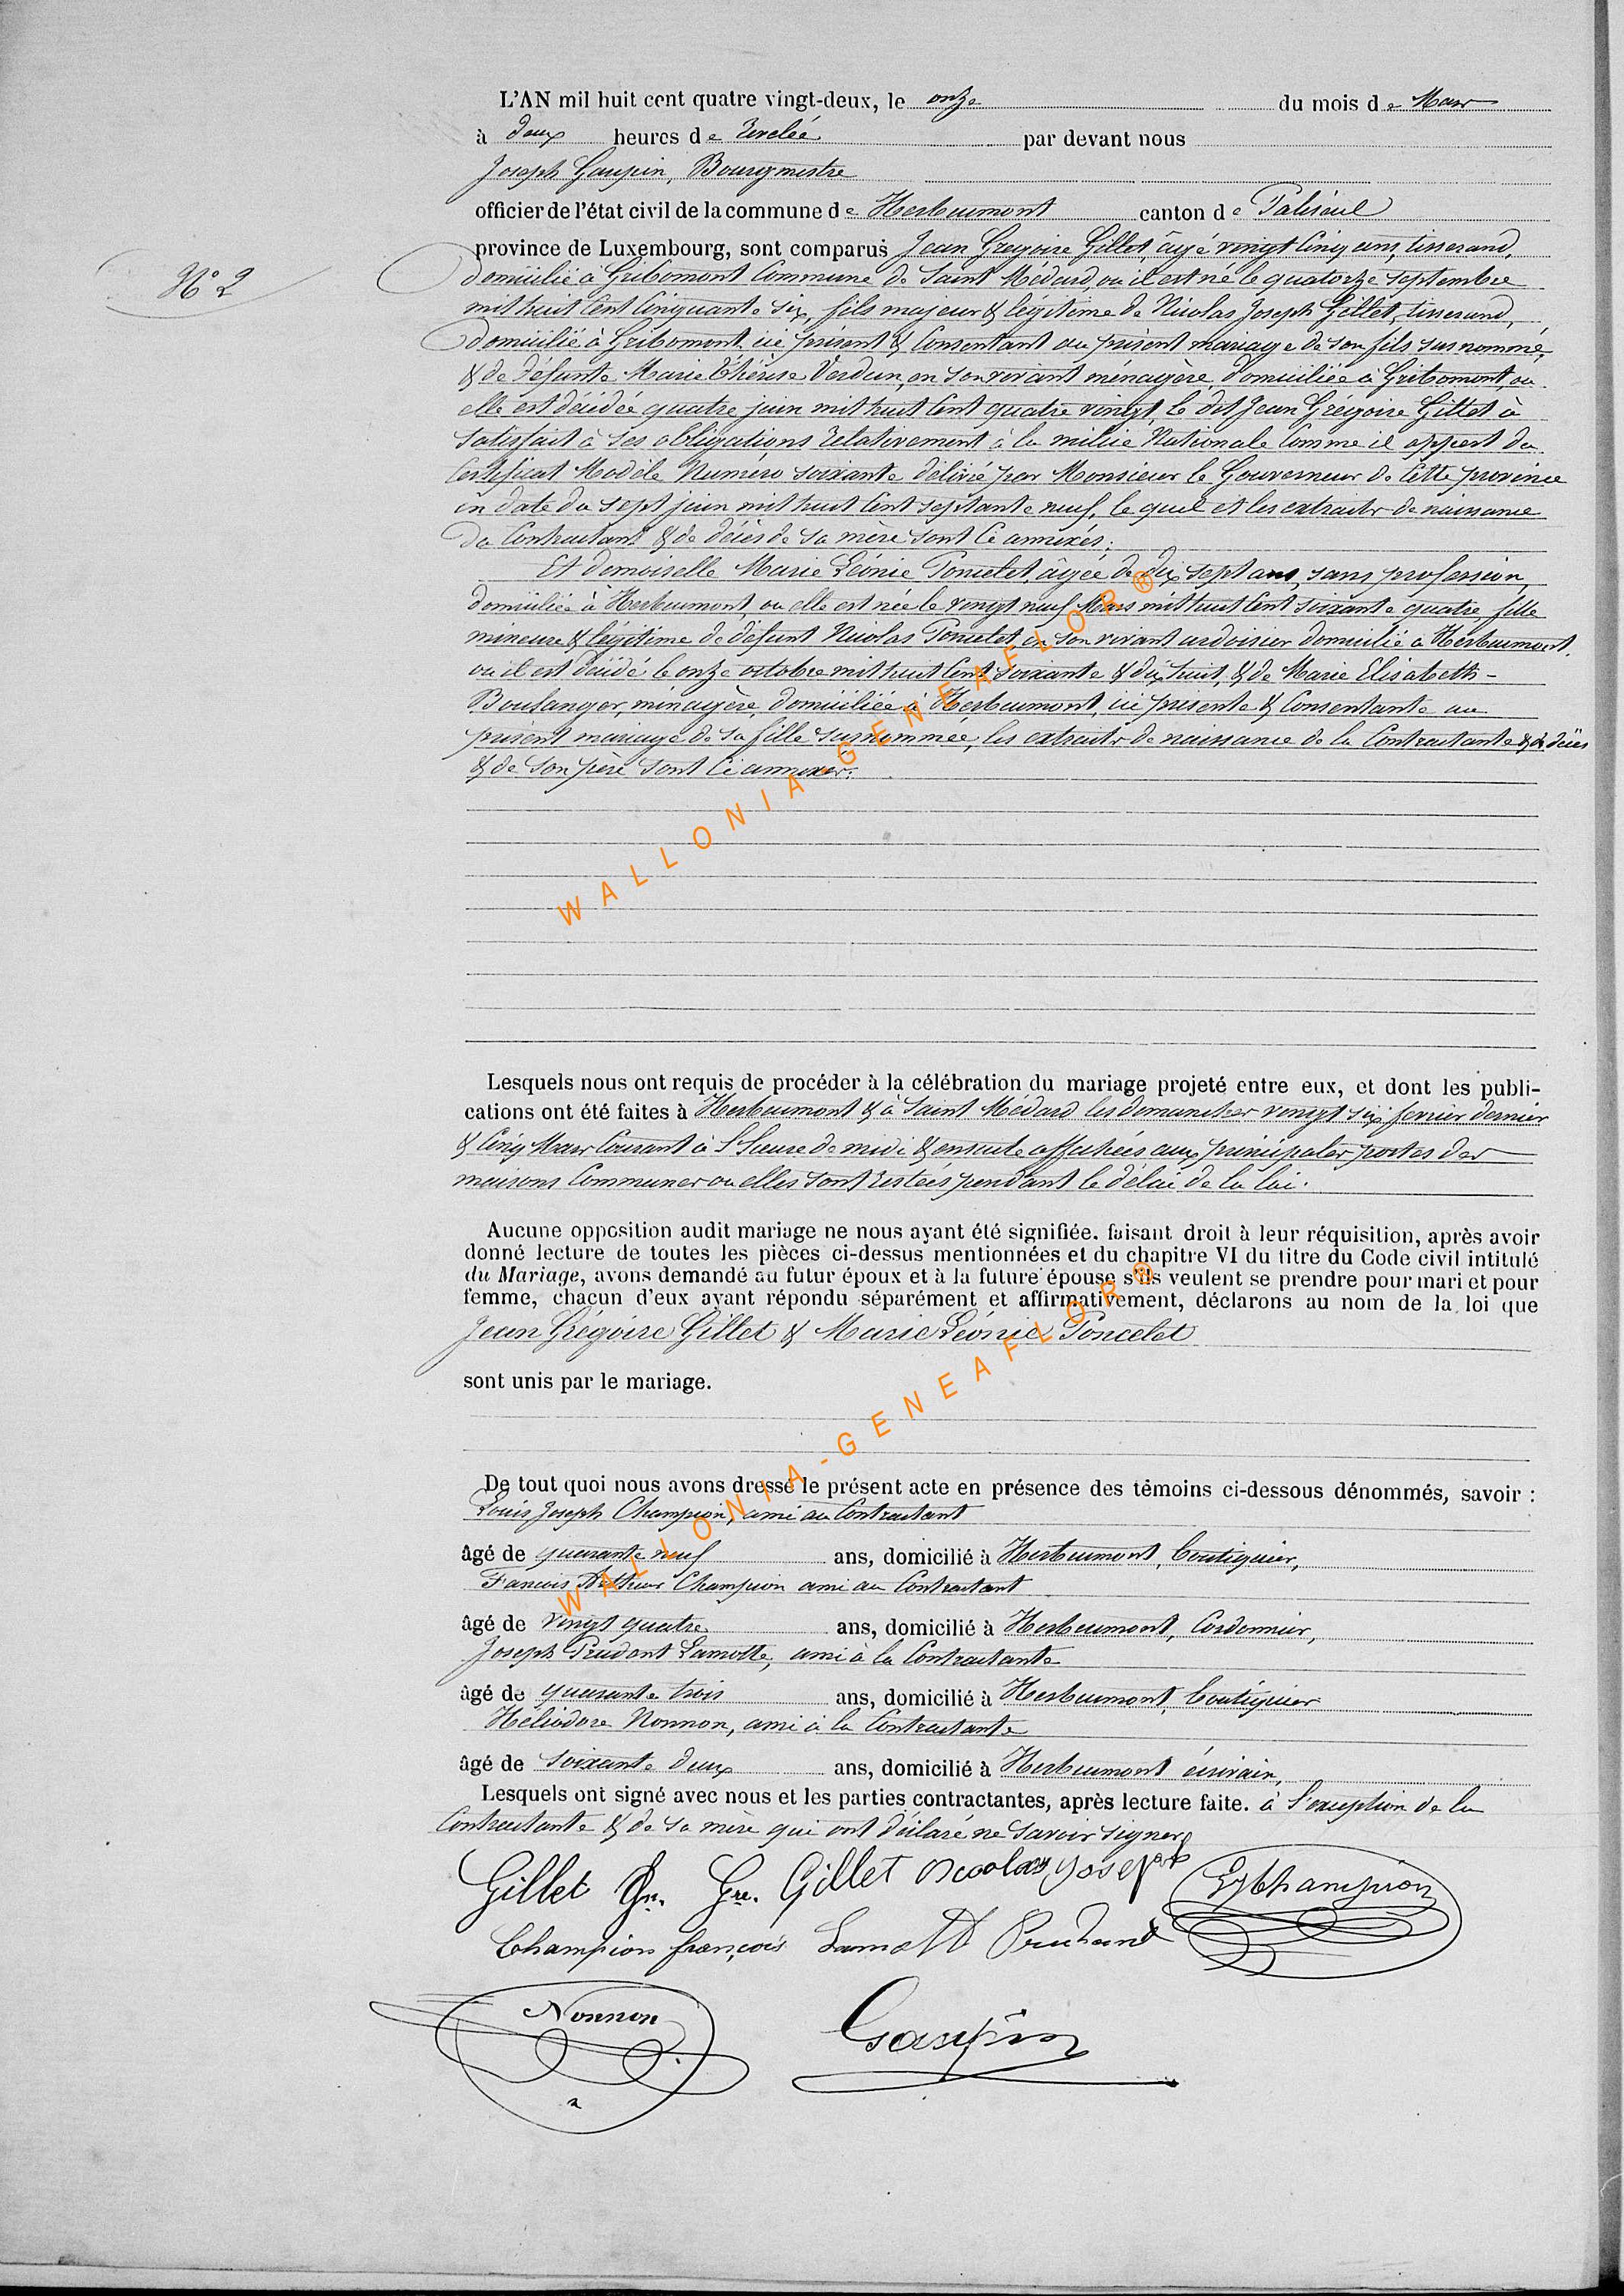 L'AN mil huit cent quatre vingt-deux, le onze du mois de Mars
à deux heures de relevée par devant nous
Joseph Gaupin, Bourgmestre
officier de l'état civil de la commune de Herbeumont canton de Paliseul
N° 2
province de Luxembourg, sont comparus Jean Grégoire Gillet, âgé vingt cinq ans, tisserand,
domicilié à Gribomont Commune de Saint Médard, ou il est né le quatorze septembre
mil huit Cent Cinquante six, fils majeur & légitime de Nicolas Joseph Gillet, tisserand,
domicilié à Gribomont ici présent & Consentant au présent mariage de son fils sus nommé,
& de défunte Marie Thérèse Verdun, en son vivant ménagère, domiciliée à Gribomont, ou
elle est décédée quatre juin mil huit Cent quatre vingt, le dit Jean Grégoire Gillet à
satisfait à ses obligations relativement à la milice Nationale Comme il appert du
Certificat Modèle Numéro soixante délivré par Monsieur le Gouverneur de Cette province
en date du sept juin mil huit Cent septante neuf, le quel et les extraits de naissance
du Contractant & de décès de sa mère sont Ci annexés;
Et demoiselle Marie Léonie Poncelet âgée de dix sept ans, sans profession,
domiciliée à Herbeumont, ou elle est née le vingt neuf Mars mil huit Cent soixante quatre, fille
mineure & légitime de défunt Nicolas Poncelet, en son vivant ardoisier domicilié à Herbeumont,
ou il est décédé le onze octobre mil huit Cent soixante & dix huit, & de Marie Elisabeth -
Boulanger, ménagère, domiciliée à Herbeumont, ici présente & Consentante au
présent mariage de sa fille susnommée, les extraits de naissance de la Contractante & de décès
& de son père sont Ci annexés.
Lesquels nous ont requis de procéder à la célébration du mariage projeté entre eux, et dont les publi-
cations ont été faites à Herbeumont & à Saint Médard les dimanches vingt six février dernier
& Cinq Mars Courant à l'heure de midi & ensuite affichées aux principales portes des
maisons Communes ou elles sont restées pendant le délai de la loi.
Aucune opposition audit mariage ne nous ayant été signifiée. faisant droit à leur réquisition, après avoir
donné lecture de toutes les pièces ci-dessus mentionnées et du chapitre VI du titre du Code civil intitulé
du Mariage, avons demandé au futur époux et à la future épouse s'ils veulent se prendre pour mari et pour
femme, chacun d'eux ayant répondu séparément et affirmativement, déclarons au nom de la loi que
Jean Grégoire Gillet & Marie Léonie Poncelet
sont unis par le mariage.
De tout quoi nous avons dressé le présent acte en présence des témoins ci-dessous dénommés, savoir :
Louis Joseph Champion, ami au Contractant
âgé de quarante neuf ans, domicilié à Herbeumont, boutiquier,
Francois Arthur Champion ami au Contractant
âgé de vingt quatre ans, domicilié à Herbeumont, Cordonnier,
Joseph Prudent Lamotte, ami à la Contractante
âgé de quarante trois ans, domicilié à Herbeumont, boutiquier
Héliodore Nonnon, ami à la Contractante
âgé de soixante deux ans, domicilié à Herbeumont écrivain,
Lesquels ont signé avec nous et les parties contractantes, après lecture faite. à l'exception de la
Contractante & de sa mère qui ont déclaré ne savoir signer
Gillet Jn. Gre. Gillet Nicolas Joseph LJChampion
Champion françois Lamotte Prudent
Nonnon Gaupin
WALLONIA-GENEAFLOR®
WALLONIA-GENEAFLOR®